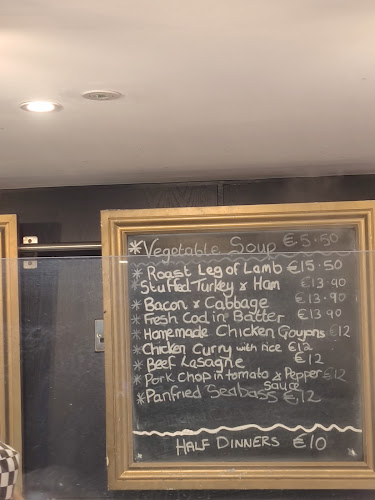 * Vegetable Soup €5.50
* Roast Leg of Lamb €15.50
* Stuffed Turkey & Ham €13.90
* Bacon & Cabbage €13.90
* Fresh Cod in Batter €13.90
* Homemade Chicken Goujons €12
* Chicken Curry with rice €12
* Beef Lasagne €12
* Pork Chop in tomato & Pepper sauce €12
* Panfried Seabass €12
HALF DINNERS €10